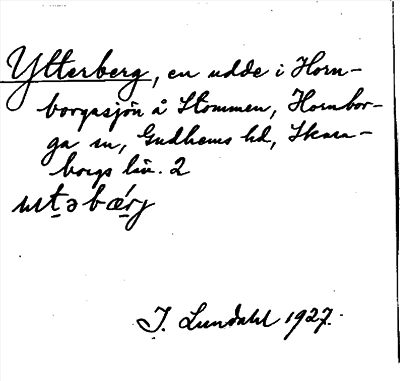 Ytterberg, en udde i Horn-
borgasjön å Stommen, Hornbor-
ga sn, Gudhems hd, Skara-
borgs län. 2
I. Lundahl 1927.